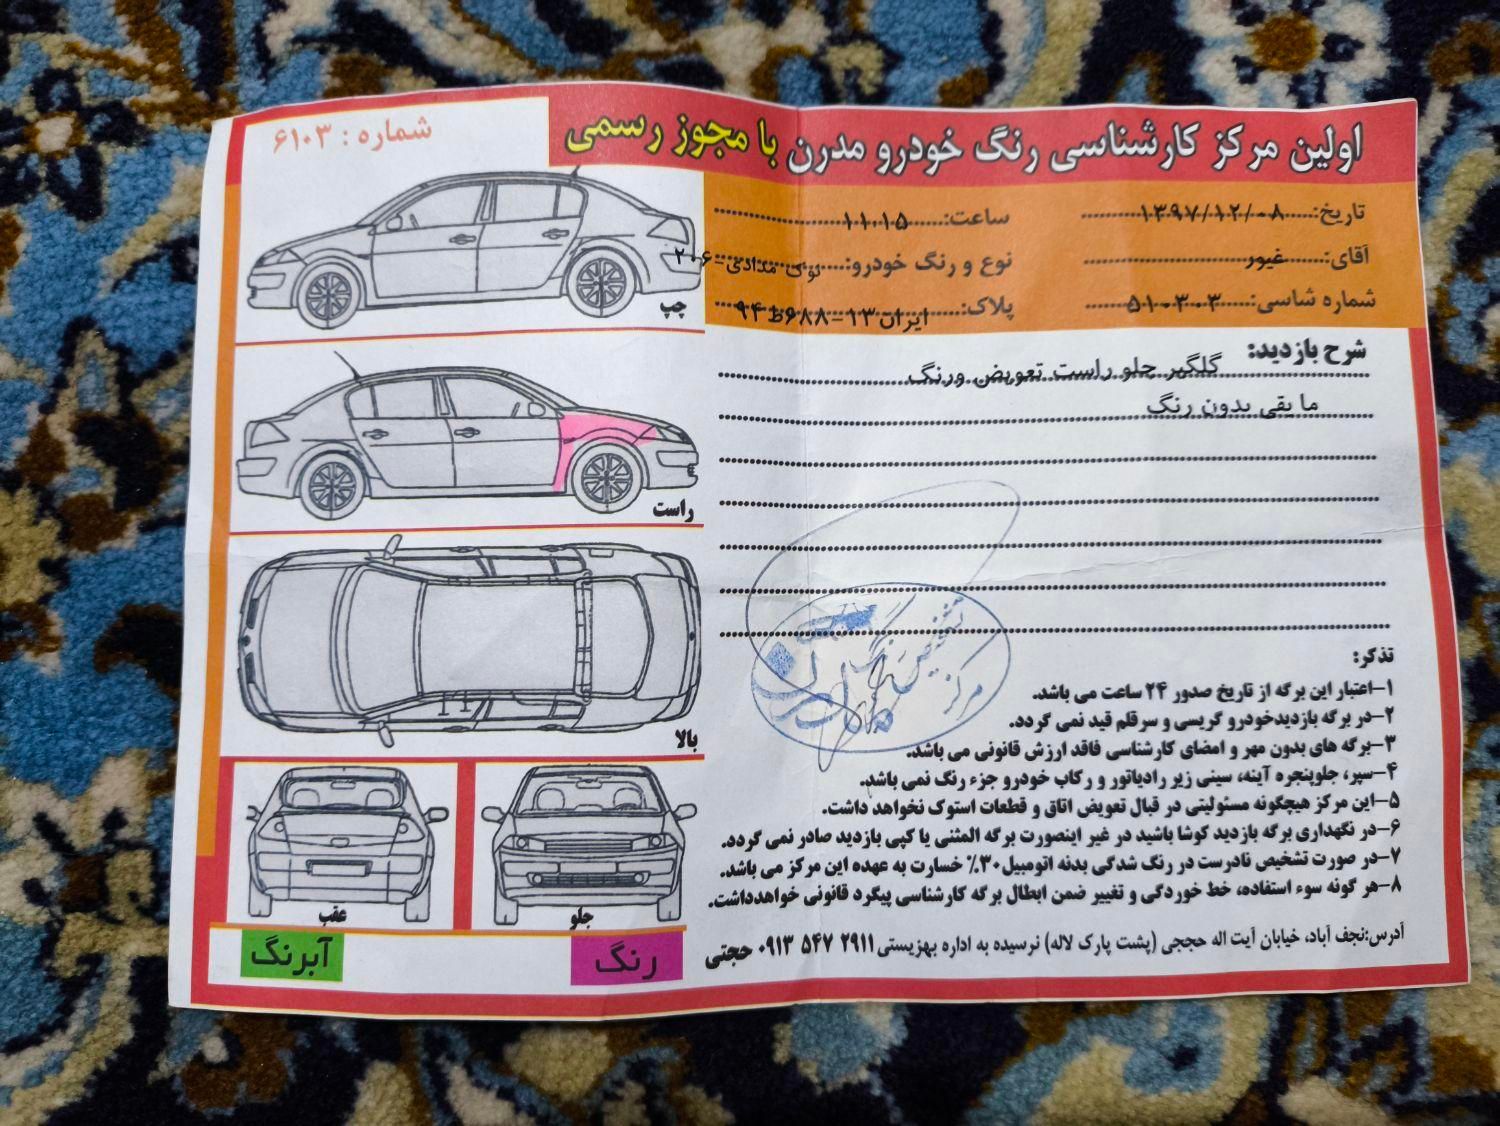 اولین مرکز کارشناسی رنگ خودرو مدرن با مجوز رسمی
شماره : ۶۱۰۳
تاریخ: ۱۳۹۷/۱۲/۰۸ ساعت: ۱۱:۱۵
آقای: غیور نوع و رنگ خودرو: نوک مدادی-۲۰۶
شماره شاسی: ۵۱۰۳۰۳ پلاک: ایران۱۳-۶۸۸ط۹۴
شرح بازدید: گلگیر جلو راست تعویض ورنگ
ما بقی بدون رنگ
چپ
راست
بالا
عقب
جلو
آبرنگ
رنگ
تشخیص رنگ
مرکز
تذکر:
۱-اعتبار این برگه از تاریخ صدور ۲۴ ساعت می باشد.
۲-در برگه بازدیدخودرو گریسی و سرقلم قید نمی گردد.
۳-برگه های بدون مهر و امضای کارشناسی فاقد ارزش قانونی می باشد.
۴-سپر، جلوپنجره آینه، سینی زیر رادیاتور و رکاب خودرو جزء رنگ نمی باشد.
۵-این مرکز هیچگونه مسئولیتی در قبال تعویض اتاق و قطعات استوک نخواهد داشت.
۶-در نگهداری برگه بازدید کوشا باشید در غیر اینصورت برگه المثنی یا کپی بازدید صادر نمی گردد.
۷-در صورت تشخیص نادرست در رنگ شدگی بدنه اتومبیل۳۰٪ خسارت به عهده این مرکز می باشد.
۸-هر گونه سوء استفاده، خط خوردگی و تغییر ضمن ابطال برگه کارشناسی پیگرد قانونی خواهدداشت.
آدرس:نجف آباد، خیابان آیت اله حججی (پشت پارک لاله) نرسیده به اداره بهزیستی ۲۹۱۱ ۵۴۷ ۰۹۱۳ حجتی